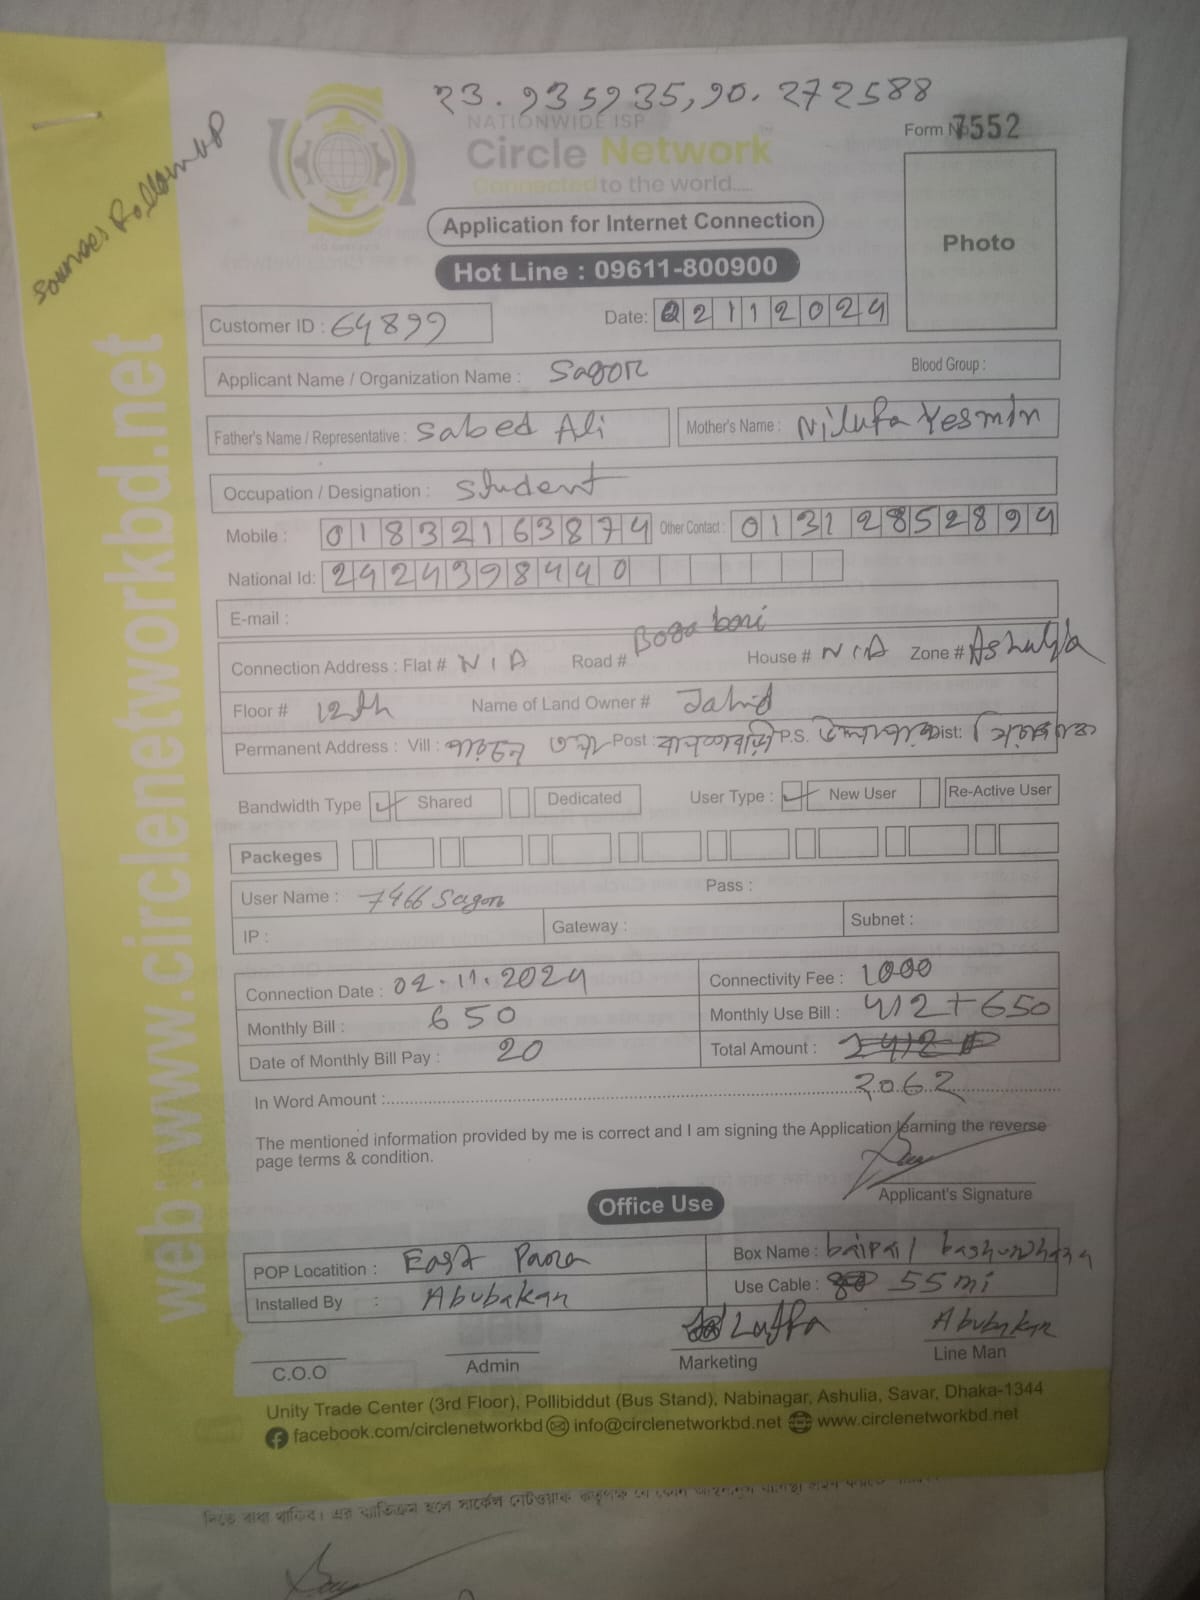 23.935935,90.272588
NATIONWIDE ISP
Circle Network
Connected to the world.....
Form No 7552
Photo
Application for Internet Connection
Hot Line : 09611-800900
Customer ID : 64899
Date: 02112024
Applicant Name / Organization Name : Sagor
Blood Group :
Father's Name / Representative : Sabed Ali
Mother's Name : Nilufa Yesmin
Occupation / Designation : Student
Mobile : 01832163874 Other Contact : 01312852894
National Id: 2424398440
E-mail :
Connection Address : Flat # N/A Road # Boga bari House # N/A Zone # Ashulia
Floor # 12th Name of Land Owner # Jahid
Permanent Address : Vill : Post : P.S. Dist:
Bandwidth Type Shared Dedicated User Type : New User Re-Active User
Packeges
User Name : 7466 Sagor Pass :
IP : Gateway : Subnet :
Connection Date : 02.11.2024 Connectivity Fee : 1000
Monthly Bill : 650 Monthly Use Bill : 412+650
Date of Monthly Bill Pay : 20 Total Amount :
In Word Amount : 2062
The mentioned information provided by me is correct and I am signing the Application learning the reverse
page terms & condition.
Applicant's Signature
Office Use
POP Locatition : East Para Box Name : baipail bashundhara
Installed By : Abubakar Use Cable : 55mi
Abubakar
C.O.O Admin Marketing Line Man
Unity Trade Center (3rd Floor), Pollibiddut (Bus Stand), Nabinagar, Ashulia, Savar, Dhaka-1344
facebook.com/circlenetworkbd info@circlenetworkbd.net www.circlenetworkbd.net
web: www.circlenetworkbd.net